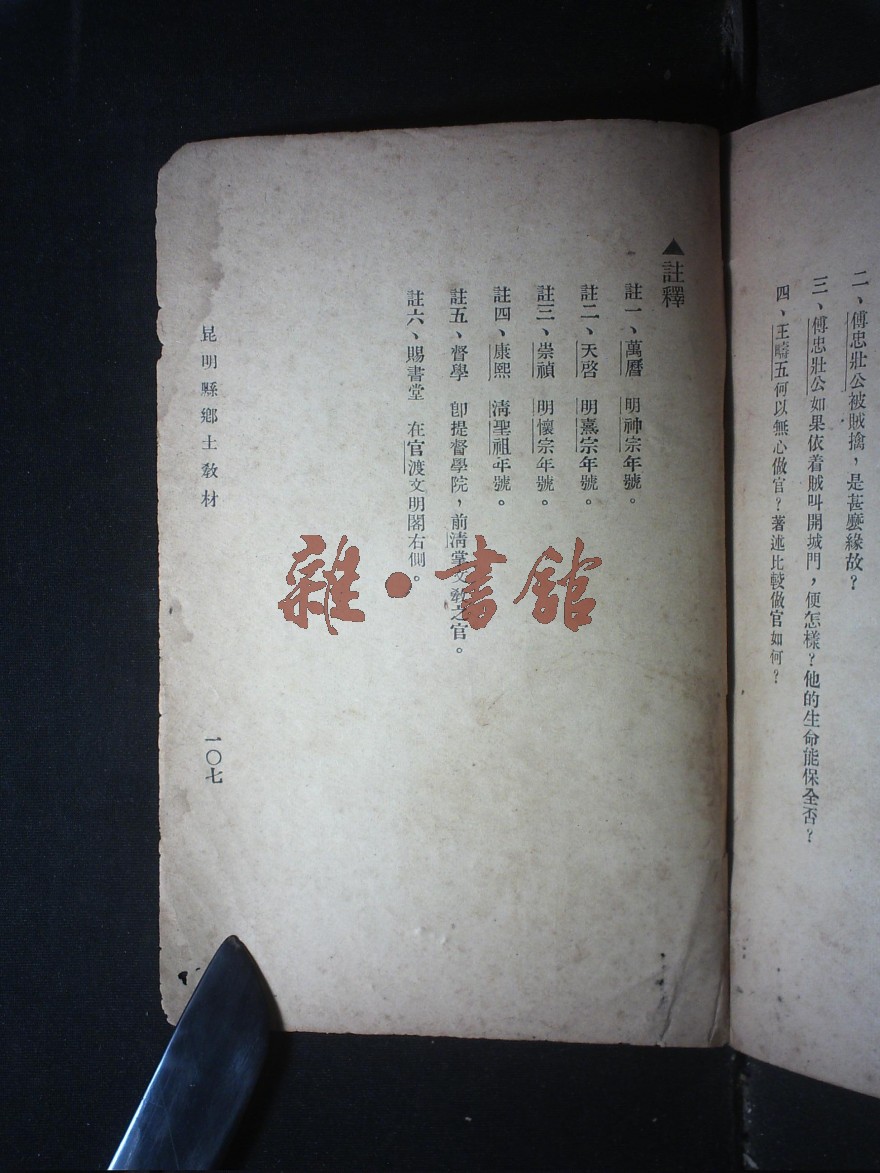 二、傅忠壯公被賊擒，是甚麼緣故？
三、傅忠壯公如果依着賊叫開城門，便怎樣？他的生命能保全否？
四、王疇五何以無心做官？著述比較做官如何？
▲註釋
註一、萬曆　明神宗年號。
註二、天啓　明熹宗年號。
註三、崇禎　明懷宗年號。
註四、康熙　清聖祖年號。
註五、督學　卽提督學院，前清掌文教之官。
註六、賜書堂　在官渡文明閣右側。
昆明縣鄉土教材
一〇七
雜·書館